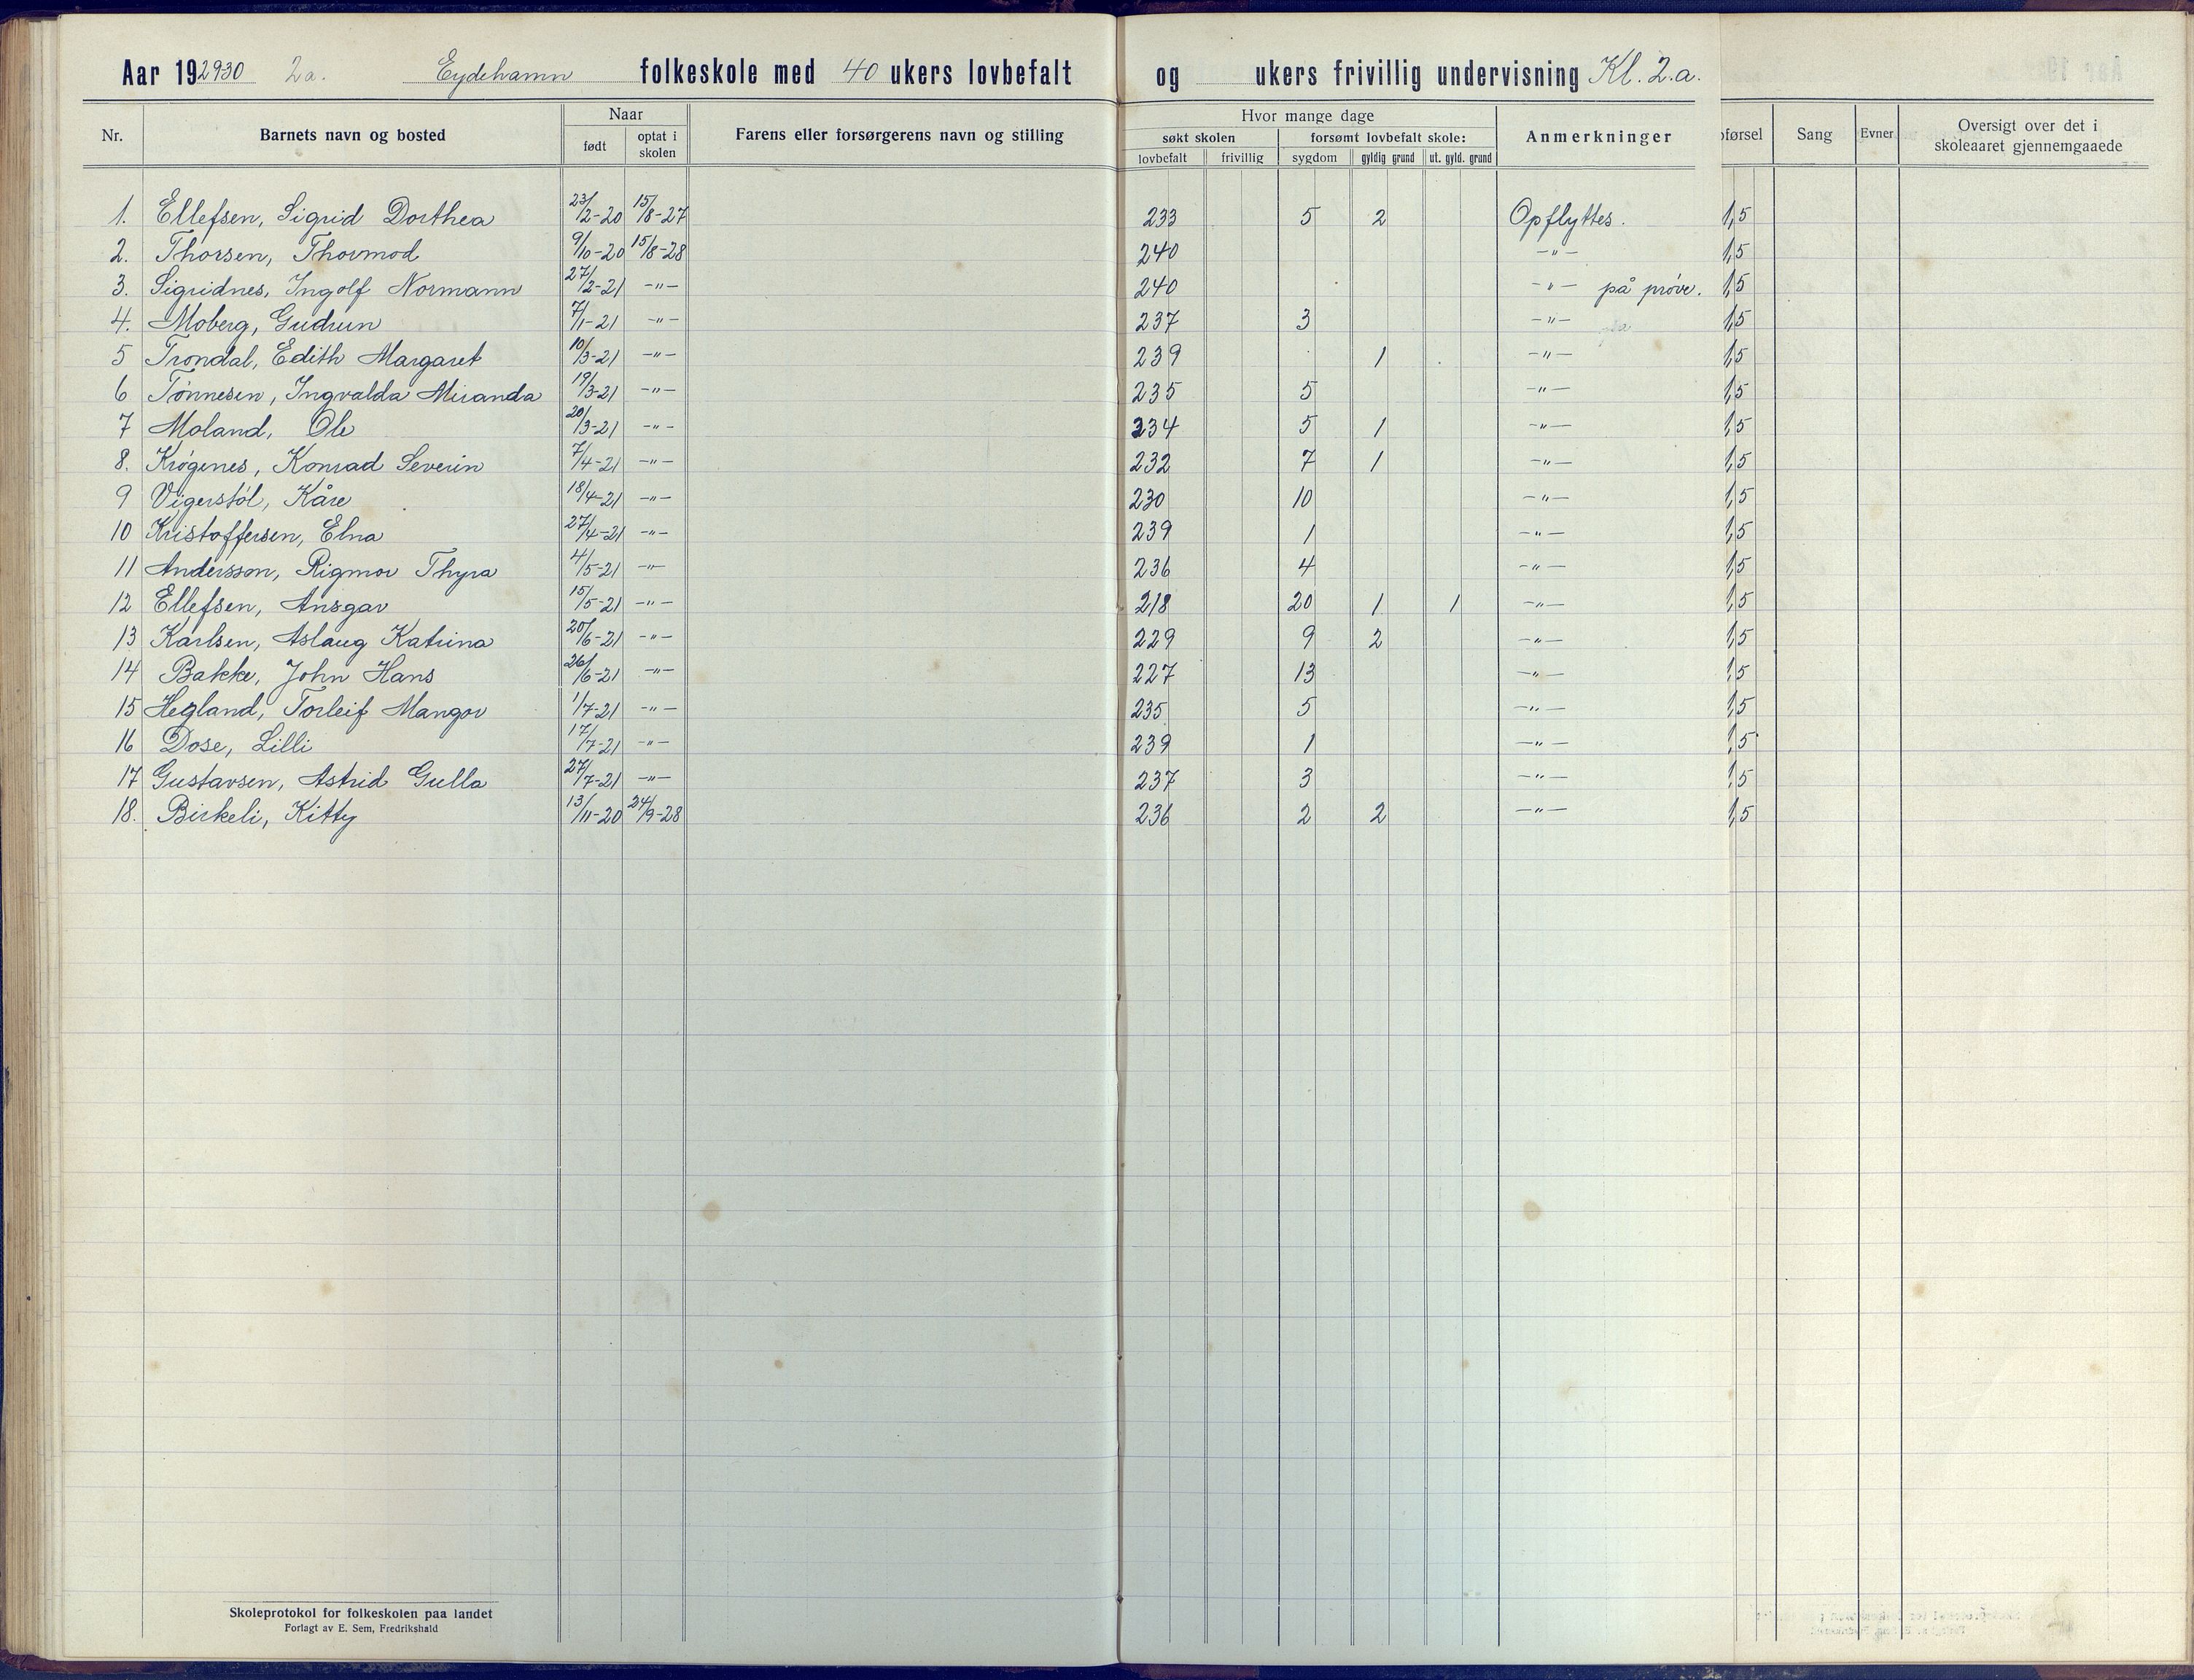 Aar 192930 2a. Eydehamn folkeskole med 40 ukers lovbefalt og ukers frivillig undervisning Kl. 2.a.
Nr. Barnets navn og bosted Naar Farens eller forsørgerens navn og stilling Hvor mange dage Anmerkninger førsel Sang Evner Oversigt over det i skoleaaret gjennemgaaede
født optat i skolen søkt skolen forsømt lovbefalt skole:
lovbefalt frivillig sygdom gyldig grund ut. gyld. grund
1. Ellefsen, Sigrid Dorthea 23/2-20 15/8-27 233 5 2 Opflyttes. 1,5
2. Thorsen, Thormod 9/10-20 15/8-28 240 -"- 1,5
3. Sigridnes, Ingolf Normann 27/2-21 -"- 240 -"- på prøve. 1,5
4. Moberg, Gudrun 7/1-21 -"- 237 3 -"- 1,5
5 Trondal, Edith Margaret 10/3-21 -"- 239 1 -"- 1,5
6 Tønnesen, Ingvalda Miranda 19/3-21 -"- 235 5 -"- 1,5
7 Moland, Ole 20/3-21 -"- 234 5 1 -"- 1,5
8. Krøgenes, Konrad Severin 7/4-21 -"- 232 7 1 -"- 1,5
9 Vigerstøl, Kåre 18/4-21 -"- 230 10 -"- 1,5
10 Kristoffersen, Elna 27/4-21 -"- 239 1 -"- 1,5
11 Andersson, Rigmor Thyra 4/5-21 -"- 236 4 -"- 1,5
12 Ellefsen, Ansgar 15/5-21 -"- 218 20 1 1 -"- 1,5
13 Karlsen, Aslaug Katrina 20/6-21 -"- 229 9 2 -"- 1,5
14 Bakke, John Hans 26/6-21 -"- 227 13 -"- 1,5
15 Hegland, Torleif Mangor 1/7-21 -"- 235 5 -"- 1,5
16 Dose, Lilli 17/7-21 -"- 239 1 -"- 1,5
17 Gustavsen, Astrid Gulla 27/7-21 -"- 237 3 -"- 1,5
18. Birkeli, Kitty 13/11-20 24/9-28 236 2 2 -"- 1,5
Skoleprotokol for folkeskolen paa landet
Forlagt av E. Sem, Fredrikshald